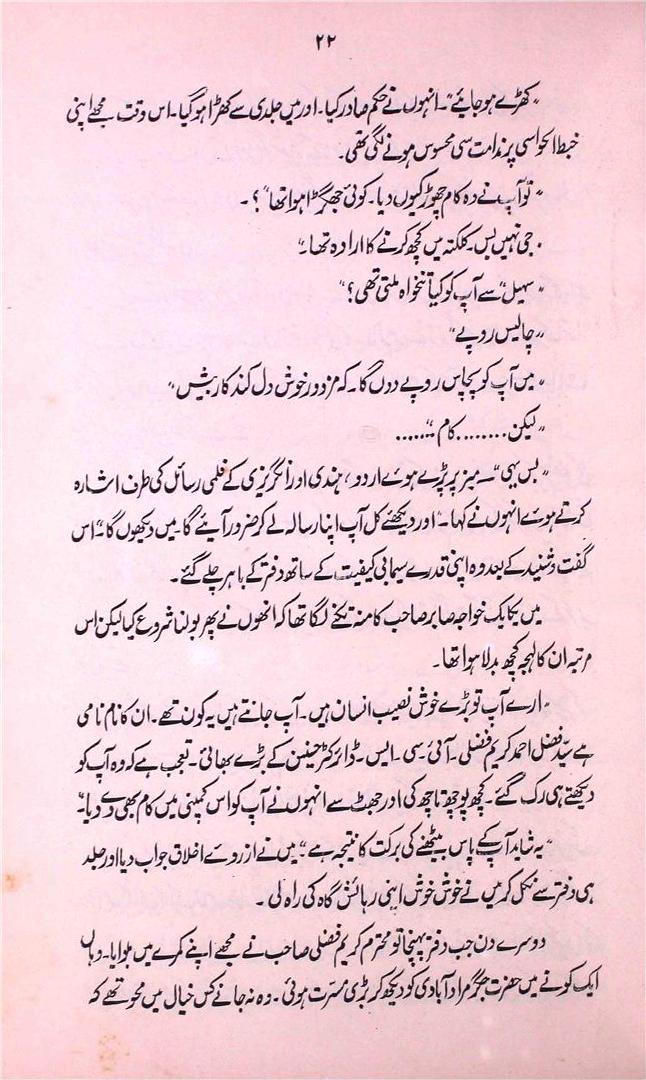 ۲۲
"کھڑے ہو جائیے"۔ انہوں نے حکم صادر کیا۔ اور میں جلدی سے کھڑا ہو گیا۔ اس وقت مجھے اپنی
خبط الحواسی پر ندامت سی محسوس ہونے لگی تھی۔
"تو آپ نے وہ کام چھوڑ کیوں دیا۔ کوئی جھگڑا ہوا تھا"؟۔
"جی نہیں بس۔ کلکتہ میں کچھ کرنے کا ارادہ تھا۔"
"سہیل" سے آپ کو کیا تنخواہ ملتی تھی؟"
"چالیس روپے"
"میں آپ کو پچاس روپے دوں گا۔ کہ مزدور خوش دل کند کار بیش"
"لیکن........ کام"......
"بس یہی" ــ میز پر پڑے ہوئے اردو، ہندی اور انگریزی کے فلمی رسائل کی طرف اشارہ
کرتے ہوئے انہوں نے کہا۔ "اور دیکھئے کل آپ اپنا رسالہ لے کر ضرور آیئے گا۔ میں دیکھوں گا"۔ اس
گفت و شنید کے بعد وہ اپنی قدرے سیمابی کیفیت کے ساتھ دفتر کے باہر چلے گئے۔
میں یکایک خواجہ صابر صاحب کا منہ تکنے لگا تھا کہ انھوں نے پھر بولنا شروع کیا لیکن اس
مرتبہ ان کا لہجہ کچھ بدلا ہوا تھا۔
"ارے آپ تو بڑے خوش نصیب انسان ہیں۔ آپ جانتے ہیں یہ کون تھے۔ ان کا نام نامی
ہے سید فضل احمد کریم فضلی۔ آئی۔ سی۔ ایس۔ ڈائرکٹر حسنین کے بڑے بھائی۔ تعجب ہے کہ وہ آپ کو
دیکھتے ہی رک گئے۔ کچھ پوچھ تاچھ کی اور جھٹ سے انہوں نے آپ کو اس کمپنی میں کام بھی دے دیا۔"
"یہ شاید آپ کے پاس بیٹھنے کی برکت کا نتیجہ ہے"۔ میں نے از روے اخلاق جواب دیا اور جلد
ہی دفتر سے نکل کر میں نے خوش خوش اپنی رہائش گاہ کی راہ لی۔
دوسرے دن جب دفتر پہنچا تو محترم کریم فضلی صاحب نے مجھے اپنے کمرے میں بلوایا۔ وہاں
ایک کونے میں حضرت جگر مرادآبادی کو دیکھ کر بڑی مسرت ہوئی۔ وہ نہ جانے کس خیال میں محو تھے کہ